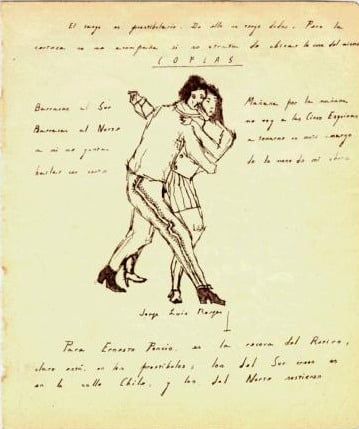 El tango es prostibulario. De ello no tengo dudas. Pero la
certeza no me acompaña si se tratan de ubicar la cuna del mismo
COPLAS
Barracas al Sur
Barracas al Norte
a mí me gustan
bailar con corte
Mañana por la mañana
me voy a las Cinco Esquinas
a tomarme un mate amargo
de la mano de mi china
Jorge Luis Borges
Para Ernesto Poncio, en la cárcel del Retiro,
claro está, en los prostíbulos; los del Sur creen en
en la calle Chile, y los del Norte sostienen